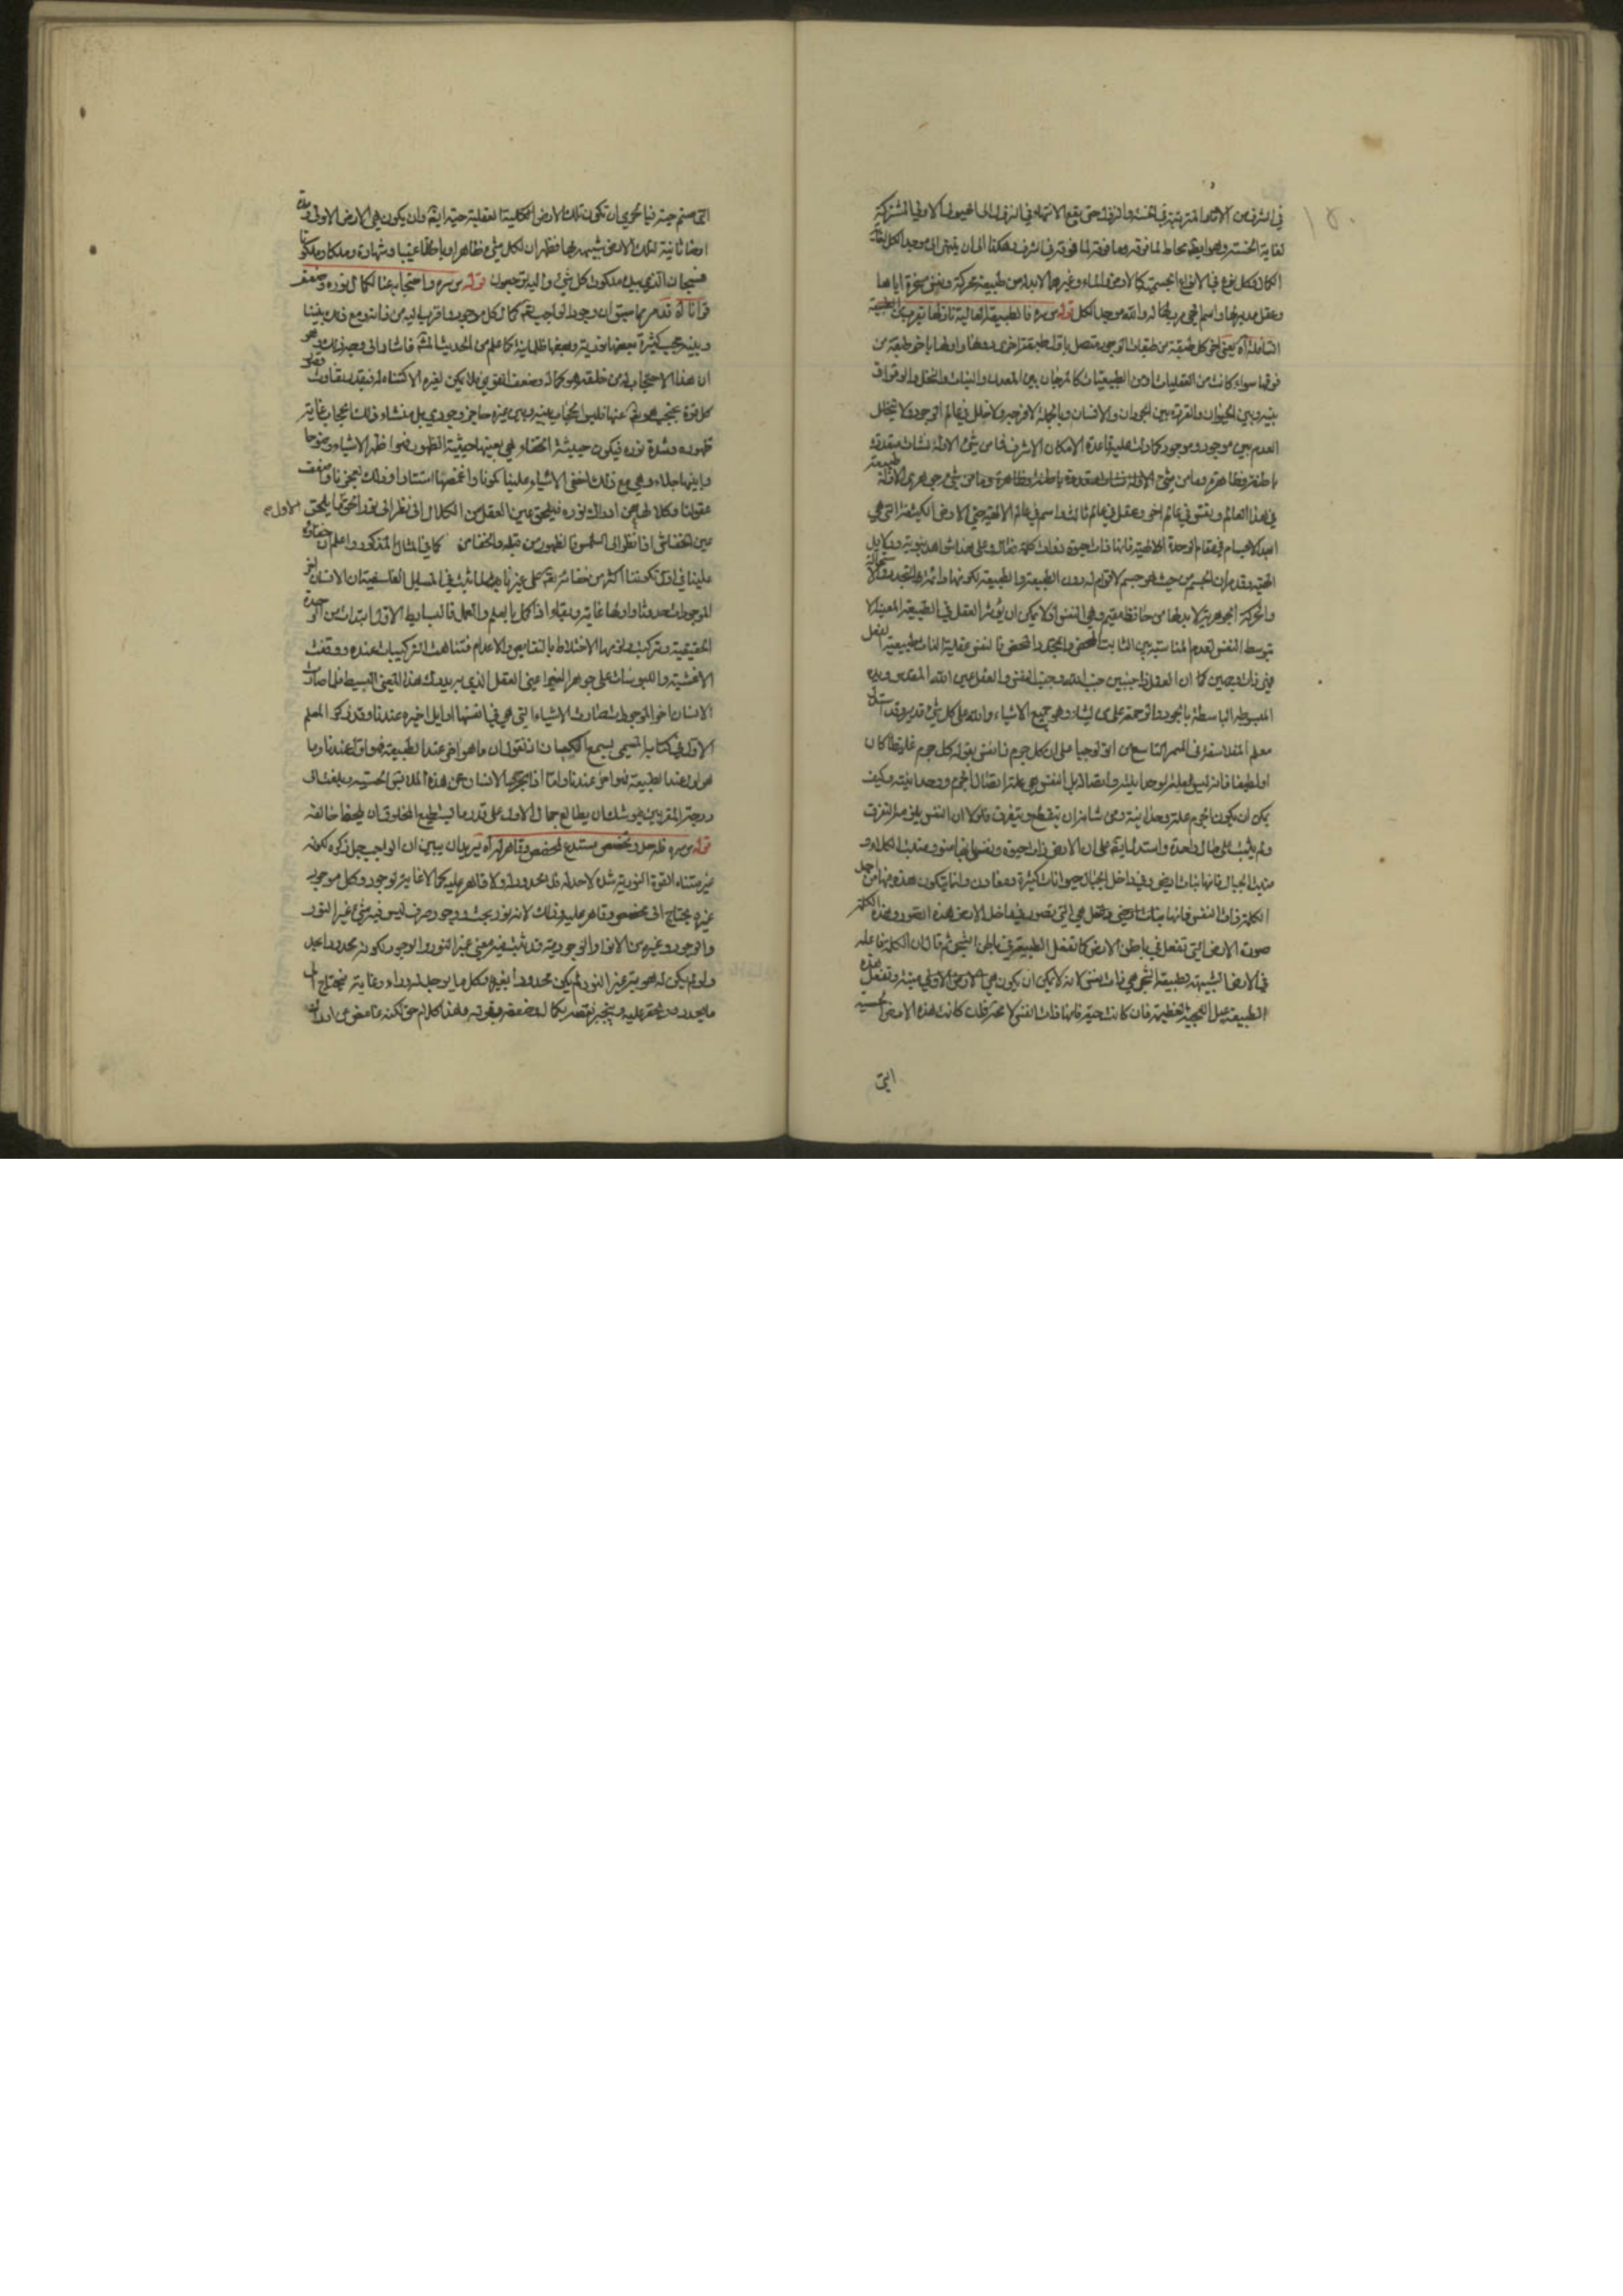 في الشرف من الاقسام المترتبة في الخسة والنزول حتى يقع الانتهاء في النزول الى الهيولى الاولى المشتركة
لغاية الخسة وهو ايضا محاط لما فوقه وما فوقه لما فوقه في الشرف وهكذا الى ان ينتهى الى موجد الكل بغاية
الكمال فكل نوع في الانواع الجسمية كالارض والماء وغيرهما لابد له من طبيعة محركة ونفس مسخرة اياها
وعقل مدبر لها واسم الهى مربيها له والله موجد الكل قوله س سره فالطبيعة العالية نازلها يقرب من الطبيعة
السافلة اه يعنى اخر كل طبقة من طبقات الوجود متصل باول طبقة اخرى دونها واولها باخر طبقة من
فوقها سواء كانت من العقليات او من الطبيعيات كالمرجان بين المعدن والنبات والنخل والوقواق
بينه وبين الحيوان والقردة بين الحيوان والانسان وبالجملة لا فرجة ولا خلل في عالم الوجود ولا يتخلل
العدم بين موجود وموجود كما دلت عليه قاعدة الامكان الاشرف فما من شئ الا وله نشأت متعددة
باطنة وظاهرة وما من شئ الا وله نشأت متعددة باطنة وظاهرة وما من شئ جوهرى الا وله طبيعة
في هذا العالم ونفس في عالم اخر وعقل في عالم ثالث واسم في عالم الالهية حتى الارض الكثيفة التى هى
ابعد الاجسام في مقام الوحدة الالهية فانها ذات حيوة وذات كلمة فعالة وعلى هذا شواهد نبوية ودلايل
الهية وقد مر ان الجسم من حيث هو جسم لا قوام له دون الطبيعة والطبيعة لكونها دائمة التجدد والاستحالة
والحركة الجوهرية لابد لها من حافظ مقيم وهى النفس اذ لا يمكن ان يؤثر العقل في الطبيعة المعينة الا
بتوسط النفس لعدم المناسبة بين الثابت المحض والمتجدد المحض فالنفس عقلية الذات طبيعية الفعل
فهى ذات وجهين كما ان العقل ذا جنبين جنب الله وجنب النفس والعقل عين الله المقدس ويده
المبسوطة الباسطة بالجود والرحمة على من يشاء وهو جميع الاشياء والله على كل شئ قدير وقد استدل
معلم الفلاسفة في الميمر التاسع من اثولوجيا على ان لكل جرم نفس بقوله كل جرم غليظا كان
او لطيفا فانه ليس بعلة لوحدانيته واتصاله بل النفس هى علة اتصال الجرم ووحدانيته وكيف
يمكن ان يكون الجرم علة وحدانيته ومن شانه ان ينقطع ويتفرق فلولا ان النفس يلزمه لتفرق
ولم يثبت على حال واحدة واستدل ايضا على ان الارض ذات حيوة ونفس بانها تنمو وتنبت الكلاء و
منبت الجبال فانها نبات ارضى وفي داخل الجبال حيوانات كثيرة ومعادن وانما يتكون هذه فيها من اجل
الكلمة ذات النفس فانها
صورة الارض التى تفعل في باطن الارض كما تفعل الطبيعة في باطن الشجر ثم قال ان الكلمة الفاعلة
في الارض الشبيهة بطبيعة الشجر هى ذات نفس لانه لا يمكن ان يكون هى الارض الاولى ميتة وتفعل هذه
الطبيعة عيل العجيبة العظيمة فان كانت حية فانها ذات النفس لا محة فان كانت هذه الارض الحسية
التى
التى صنم حية فبالحرى ان تكون تلك الارض الكلية العقلية حية ايضا وان يكون هى الارض الاولى وهذه
ارضا ثانية لتلك الارض شبيهة بها فظهر ان لكل شئ ظاهرا وباطنا غيبا وشهادة وملكا وملكوتا
فسبحان الذى بيده ملكوت كل شئ واليه ترجعون قوله س سره واحتجابه عنا لكمال نوره وضعف
قوانا اه قد مر بما سبق ان وجود الواجب تعالى كمال كل موجود واقرب اليه من ذاته ومع ذلك بيننا
وبينه حجب كثيرة بعضها نورية وبعضها ظلمانية كما علم من الحديث المشهور فاشار الى وجه ذلك وهو
ان هذا الاحتجاب له من خلقه هو كماله وضعف الخلق
كل قوة يحتجب هو تعالى عنها فليس الحجاب بينه وبين غيره حاجز وجودى بل منشاء ذلك الحجاب غاية
ظهوره وشدة نوره فيكون حيثية الخفاء هى بعينها حيثية الظهور فهو اظهر الاشياء وضوحا
وابينها جلاء وهى مع ذلك اخفى الاشياء علينا كمونا واغمضها استتارا وذلك لعجزنا وضعف
عقولنا وكلالها عن ادراك نوره فيلحق عين العقل من الكلال اذا نظر الى نور الحق ما يلحق الاول
عين الخفاش اذا نظر الى الشمس فالظهور من قبله والخفا من كما في المثال المذكور واعلم ان خفاؤه
علينا في اول تكوننا اكثر من خفائه تعالى على غيرنا لما ثبت في المسائل الفلسفية ان الانسان اخر
الموجودات حدوثا واولها غاية وبقاء اذا كمل بالعلم والعمل فالبسايط الاول ابتدات من الوحدة
الحقيقية وتركبت ولزمها الاختلاط بالنقايص والاعدام فتناهت التركيبات عنده ووقفت
الاغشية واللبوسات على جوهر النير اعنى العقل الذى به يدرك هذا المعنى البسيط فلما صار
الانسان اخر الموجودات صارت الاشياء التى هى في انفسها اوايل اخيرة عندنا وقد ذكر المعلم
الاول في كتابه المسمى بسمع الكيان انه نقول ان ما هو اخر عند الطبيعة فهو اول عندنا وما
هو اول عند الطبيعة فهو اخر عندنا واما اذا تجرد الانسان عن هذه الملابس الحسية وبلغت الى
درجة المقربين فيوشك ان يطالع جمال الاول على قدر ما يستطيع المخلوق ان يلحظ خالقه
قوله س سره فله حد وتخصص مستدع لمخصص وقاهر له اه يريد ان يبين ان الواجب جل ذكره لكونه
غير متناه القوة النورية شدة لا حد له فلا محدد له ولا قاهر عليه كما لا غاية لوجوده وكل موجود
غيره يحتاج الى مخصص وقاهر عليه وذلك لانه نور بحت ووجود صرف ليس فيه شئ غير النور
والوجود وغيره من الانوار الوجودية قد ثبت فيه معنى غير النور والوجود لكونه محدودا بحد
ولو لم يكن له هوية غير النور لم يكن محدودا بغيره وكل ما يوجد له وراء وغاية فيحتاج الى
ما يحدده ويقهر عليه ويجبر نقصه بكماله وضعفه بقوته وهذا كلام حق لكنه غامض عن ادراك